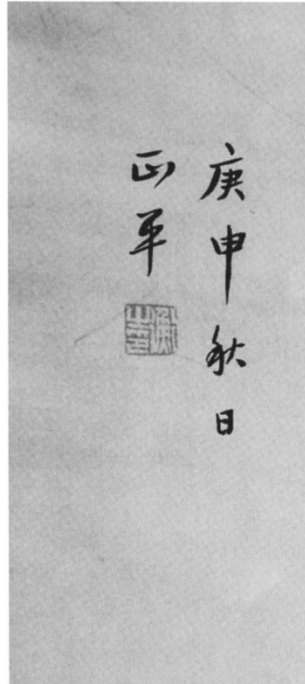 庚申秋日
正平